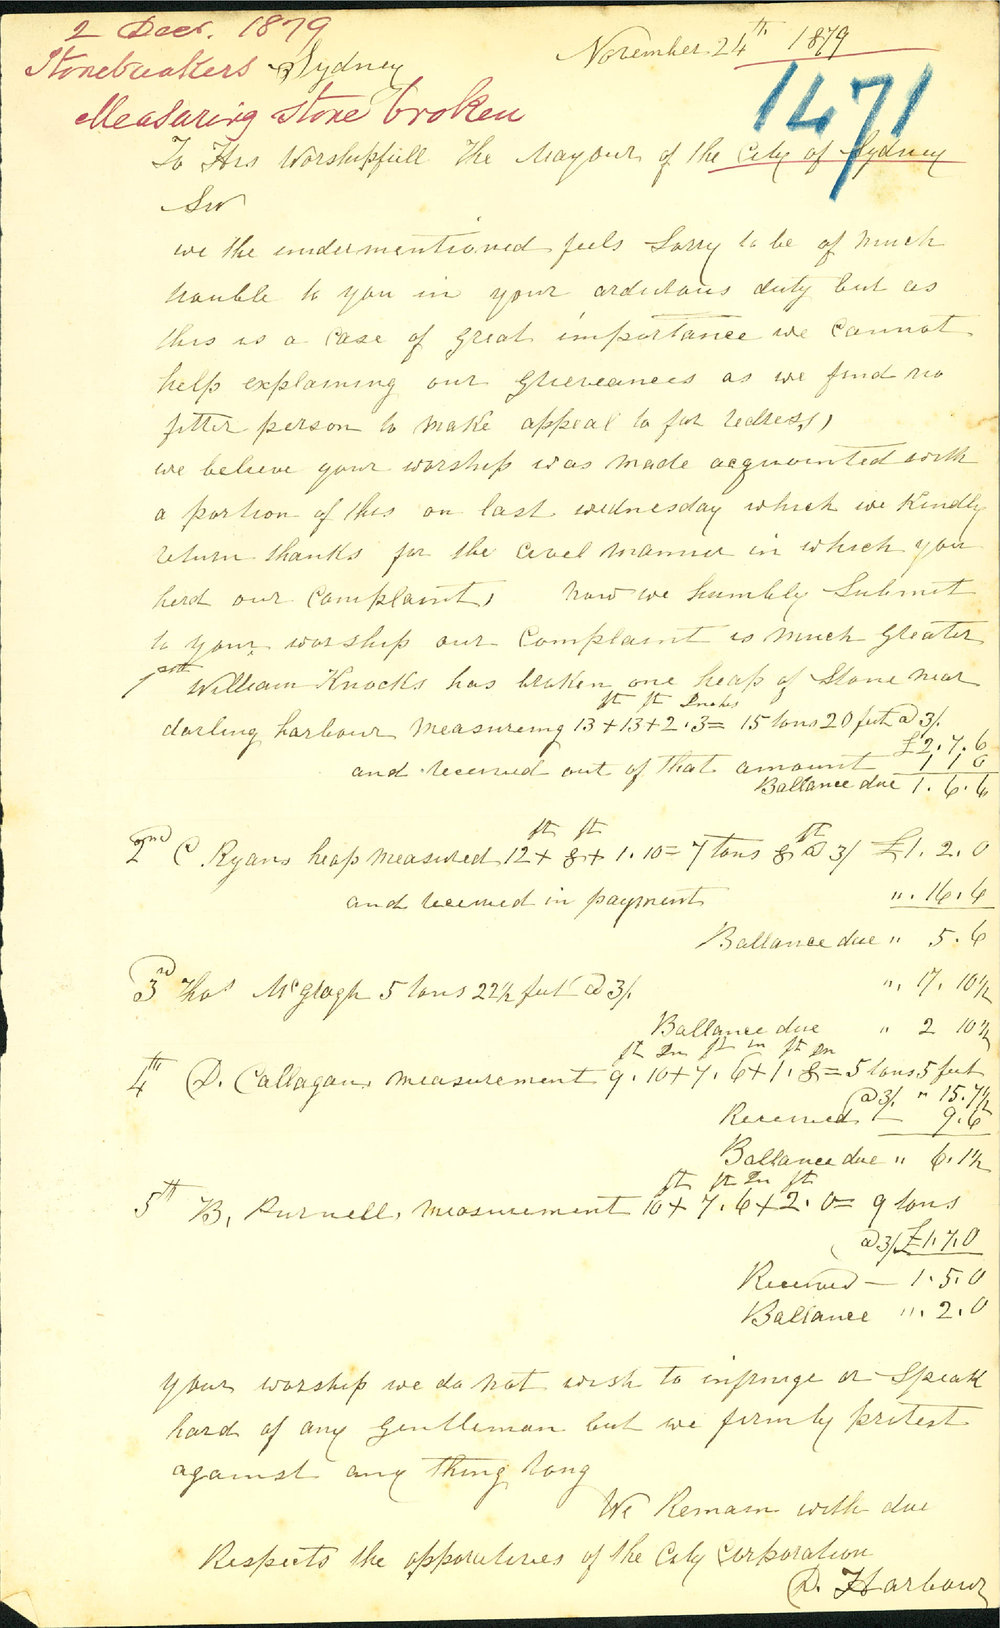 2 Decr. 1879
Stonebreakers Sydney
November 24th 1879
Measuring stone broken
1471
To His Worshipfull The Mayour of the City of Sydney
Sir
we the undermentioned feels Sorry to be of much
trouble to you in your ardutous duty but as
this is a case of great importance we cannot
help explaining our grieveances as we find no
fitter person to make appeal to for redress,)
we believe your worship was made acquointed with
a portion of this on last wednesday which we Kindly
return thanks for the cevel manner in which you
herd our Complaint, now we humbly Submit
to your worship our Complaint is much greater
1st William Knocks has broken one heap of Stone near
ft ft Inches
darling harbour measureing 13 + 13 + 2.3 = 15 tons 20 feet @ 3/.
£2.7.6
and received out of that amount 1 1 0
Ballance due 1.6.6
ft ft ft
2nd C Ryans heap measured 12 + 8 + 1.10 = 7 tons 8 @ 3/ £1.2.0
and received in payment ". 16.6
Ballance due " 5.6
3rd Thos McGlogh 5 tons 22½ feet @ 3/. ". 17. 10½
Ballance due " 2 10½
ft In ft in ft In
4th D. Callagan, measurement 9.10 + 7.6 + 1.8 = 5 tons 5 feet
@ 3/. " 15.7½
Received — 9.6
Ballance due " 6.1½
ft ft In ft
5th B, Purnell, measurement 10 + 7.6 + 2.0 = 9 tons
@ 3/ £1.7.0
Received — 1.5.0
Ballance ". 2.0
your worship we do not wish to infringe or Speak
hard of any Gentleman but we firmly protest
against any thing rong
We Remain with due
Respects the opporatives of the City Corporation
D. Harbour